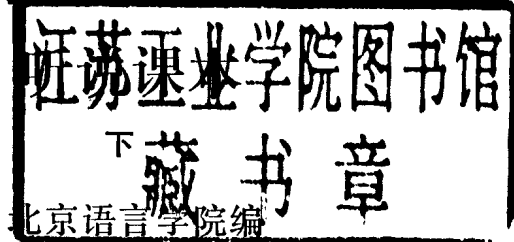 江苏工业学院图书馆
下
藏书章
北京语言学院编